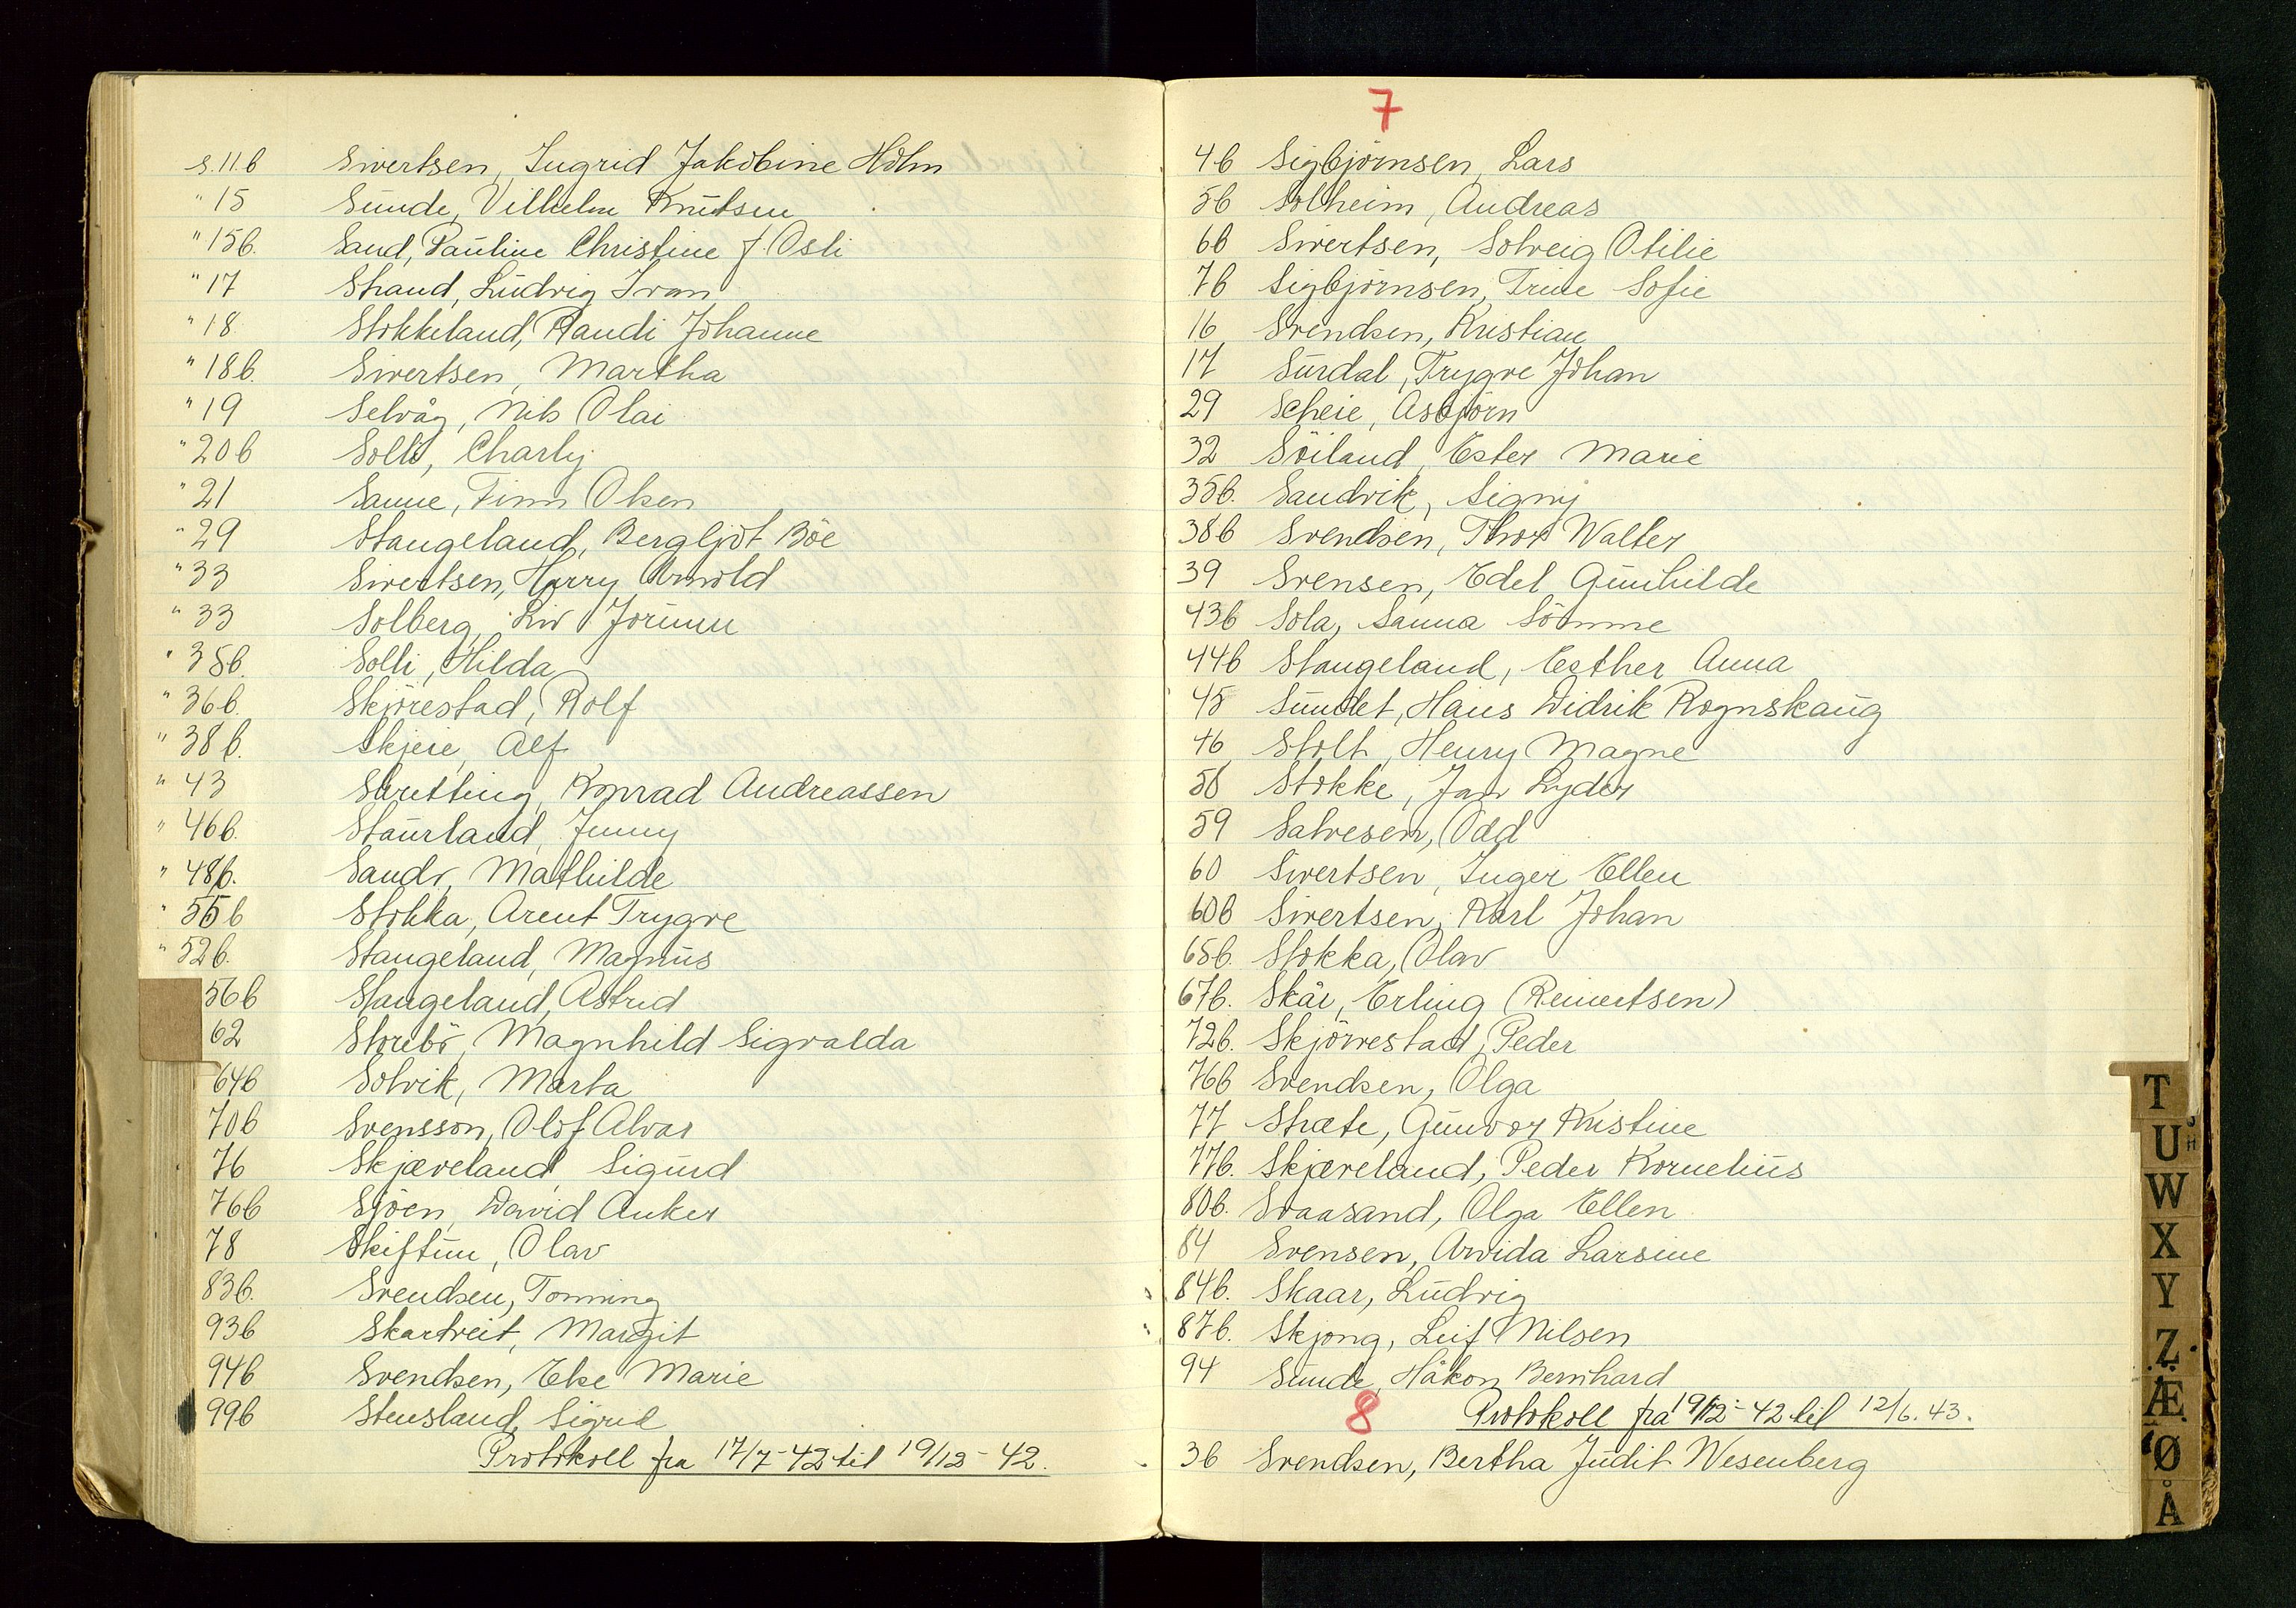 s. 11.b Sivertsen, Ingrid Jakobine Holm
" 15 Sunde, Vilhelm Knutsen
" 15b. Sand, Pauline Christine f. Osli
" 17 Strand, Ludvig Ivan
" 18 Stokkeland, Randi Johanne
" 18b. Sivertsen, Martha
" 19 Selvåg, Nils Olai
" 20b Solli, Charly
" 21 Sanne, Finn Olsen
" 29 Stangeland, Bergljot Böe
" 33 Sivertsen, Harry Arnold
" 33 Solberg, Liv Jorunn
" 35b. Solli, Hilda
" 36b. Skjörestad, Rolf
" 38b. Skjeie, Alf
" 43 Skretting, Konrad Andreassen
" 46b. Staurland, Jenny
" 48b. Sandv, Mathilde
" 55b Stokka, Arent Trygve
" 52b. Stangeland, Magnus
56b Stangeland, Astrid
62 Storebö, Magnhild Sigvalda
64b Solvik, Marta
70b Svensson, Olof Alvar
76 Skjæveland, Sigurd
76b Sjöen, David Anker
78 Skiftun, Olav
83b. Svendsen, Tonning
93b Skartveit, Margit
94b Svendsen, Else Marie
99b Stensland, Sigrid
Protokoll fra 17/7-42 til 19/12-42.
7
4b Sigbjörnsen, Lars
5b Solheim, Andreas
6b Sivertsen, Solveig Otilie
7b Sigbjörnsen, Trine Sofie
16 Svendsen, Kristian
17 Surdal, Trygve Johan
29 Scheie, Asbjörn
32 Söiland, Ester Marie
35b. Sandvik, Signy
38b Svendsen, Thor Walter
39 Svensen, Edel Gunhilde
43b Sola, Sanna Sömme
44b Stangeland, Esther Anna
45 Sundet, Hans Didrik Rognskaug
46 Stolt, Henry Magne
58 Stokke, Jan Lyder
59 Salvesen, Odd
60 Sivertsen, Inger Ellen
60b Sivertsen, Karl Johan
65b. Stokka, Olav
67b. Skår, Erling (Reinertsen)
72b. Skjörrestad, Peder
76b Svendsen, Olga
77 Stræte, Gunvor Kristine
77b. Skjæveland, Peder Kornelius
80b. Svaasand, Olga Ellen
84 Svensen, Arvida Larsine
84b. Skaar, Ludvig
87b. Skjong, Leif Nilsen
94 Sunde, Håkon Bernhard
8 Protokoll fra 19/12-42 til 12/6.43.
3b Svendsen, Bertha Judit Wesenberg
T
U
W
X
Y
Z
Æ
Ø
Å